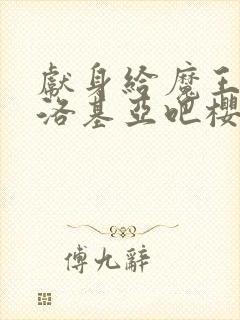 獻身給魔王
洛基亞吧櫻
傅九辭